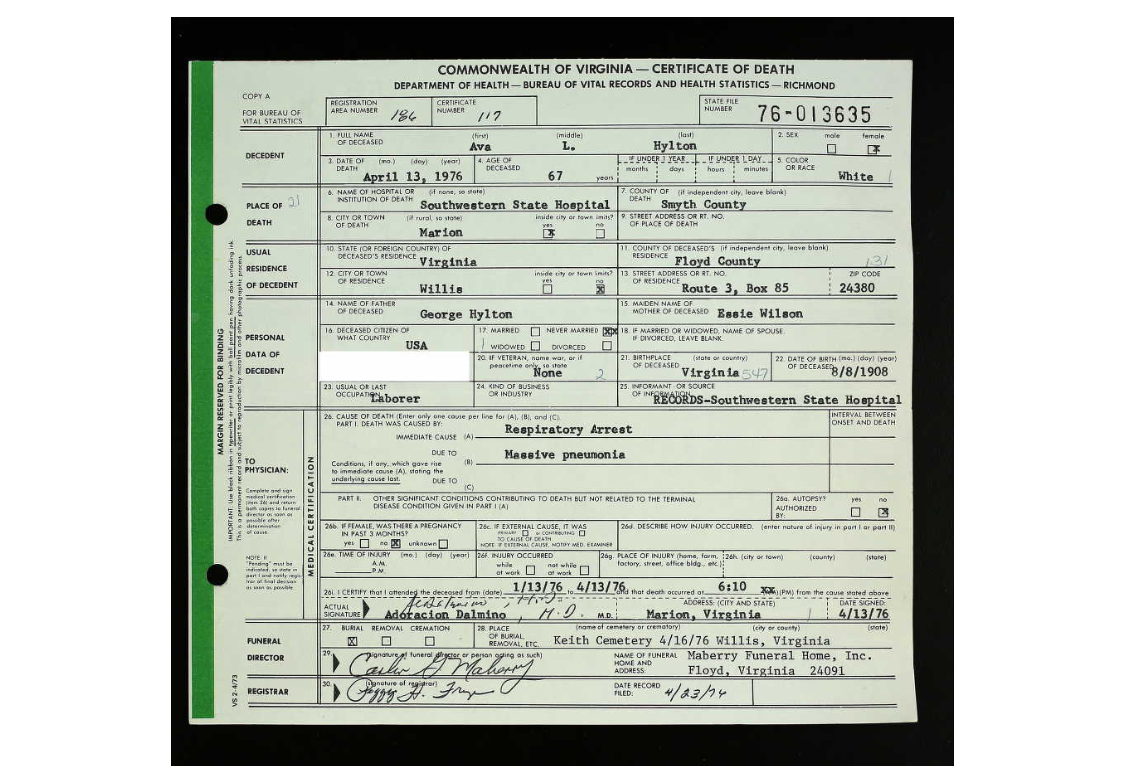 COMMONWEALTH OF VIRGINIA — CERTIFICATE OF DEATH
DEPARTMENT OF HEALTH — BUREAU OF VITAL RECORDS AND HEALTH STATISTICS — RICHMOND
COPY A
FOR BUREAU OF VITAL STATISTICS
REGISTRATION AREA NUMBER 186
CERTIFICATE NUMBER 117
STATE FILE NUMBER 76-013635
DECEDENT
1. FULL NAME OF DECEASED (first) (middle) (last)
Ava L. Hylton
2. SEX male female X
3. DATE OF DEATH (mo.) (day) (year)
April 13, 1976
4. AGE OF DECEASED 67 years
IF UNDER 1 YEAR months days
IF UNDER 1 DAY hours minutes
5. COLOR OR RACE White
PLACE OF DEATH 21
6. NAME OF HOSPITAL OR INSTITUTION OF DEATH (if none, so state)
Southwestern State Hospital
7. COUNTY OF DEATH (if independent city, leave blank)
Smyth County
8. CITY OR TOWN OF DEATH (if rural, so state)
Marion
inside city or town limits? yes X no
9. STREET ADDRESS OR RT. NO. OF PLACE OF DEATH
USUAL RESIDENCE OF DECEDENT
10. STATE (OR FOREIGN COUNTRY) OF DECEASED'S RESIDENCE
Virginia
11. COUNTY OF DECEASED'S RESIDENCE (if independent city, leave blank)
Floyd County 131
12. CITY OR TOWN OF RESIDENCE
Willis
inside city or town limits? yes no X
13. STREET ADDRESS OR RT. NO. OF RESIDENCE
Route 3, Box 85
ZIP CODE 24380
PERSONAL DATA OF DECEDENT
14. NAME OF FATHER OF DECEASED
George Hylton
15. MAIDEN NAME OF MOTHER OF DECEASED
Essie Wilson
16. DECEASED CITIZEN OF WHAT COUNTRY
USA
17. MARRIED NEVER MARRIED XX
WIDOWED DIVORCED
18. IF MARRIED OR WIDOWED, NAME OF SPOUSE. IF DIVORCED, LEAVE BLANK.
20. IF VETERAN, name war, or if peacetime only, so state
None 2
21. BIRTHPLACE (state or country)
Virginia 547
22. DATE OF BIRTH (mo.) (day) (year) OF DECEASED
8/8/1908
23. USUAL OR LAST OCCUPATION
Laborer
24. KIND OF BUSINESS OR INDUSTRY
25. INFORMANT OR SOURCE OF INFORMATION
RECORDS-Southwestern State Hospital
MARGIN RESERVED FOR BINDING
IMPORTANT. Use black ribbon in typewriter or print legibly with ball point pen, having dark unfading ink.
This is a permanent record and subject to reproduction by microfilm and other photographic process.
TO PHYSICIAN:
Complete and sign medical certification (item 26) and return both copies to funeral director as soon as possible after determination of cause.
NOTE: If "Pending" must be indicated, so state in part I and notify registrar of final decision as soon as possible.
MEDICAL CERTIFICATION
26. CAUSE OF DEATH (Enter only one cause per line for (A), (B), and (C).
PART I. DEATH WAS CAUSED BY:
INTERVAL BETWEEN ONSET AND DEATH
IMMEDIATE CAUSE (A) Respiratory Arrest
DUE TO (B) Massive pneumonia
Conditions, if any, which gave rise to immediate cause (A), stating the underlying cause last.
DUE TO (C)
PART II. OTHER SIGNIFICANT CONDITIONS CONTRIBUTING TO DEATH BUT NOT RELATED TO THE TERMINAL DISEASE CONDITION GIVEN IN PART I (A)
26a. AUTOPSY? yes no X
AUTHORIZED BY:
26b. IF FEMALE, WAS THERE A PREGNANCY IN PAST 3 MONTHS?
yes no X unknown
26c. IF EXTERNAL CAUSE, IT WAS
PRIMARY or CONTRIBUTING TO CAUSE OF DEATH
NOTE: IF EXTERNAL CAUSE, NOTIFY MED. EXAMINER
26d. DESCRIBE HOW INJURY OCCURRED. (enter nature of injury in part I or part II)
26e. TIME OF INJURY (mo.) (day) (year)
A.M.
P.M.
26f. INJURY OCCURRED
while at work not while at work
26g. PLACE OF INJURY (home, farm, factory, street, office bldg., etc.)
26h. (city or town) (county) (state)
26i. I CERTIFY that I attended the deceased from (date) 1/13/76 to 4/13/76 and that death occurred at 6:10 (PM) from the cause stated above
ACTUAL SIGNATURE M.D.
Adoracion Dalmino, M.D.
ADDRESS: (CITY AND STATE)
Marion, Virginia
DATE SIGNED:
4/13/76
FUNERAL DIRECTOR
27. BURIAL X REMOVAL CREMATION
28. PLACE OF BURIAL, REMOVAL, ETC. (name of cemetery or crematory) (city or county) (state)
Keith Cemetery 4/16/76 Willis, Virginia
29. (signature of funeral director or person acting as such)
NAME OF FUNERAL HOME AND ADDRESS:
Maberry Funeral Home, Inc.
Floyd, Virginia 24091
REGISTRAR
30. (signature of registrar)
DATE RECORD FILED: 4/23/76
VS 2-4/73